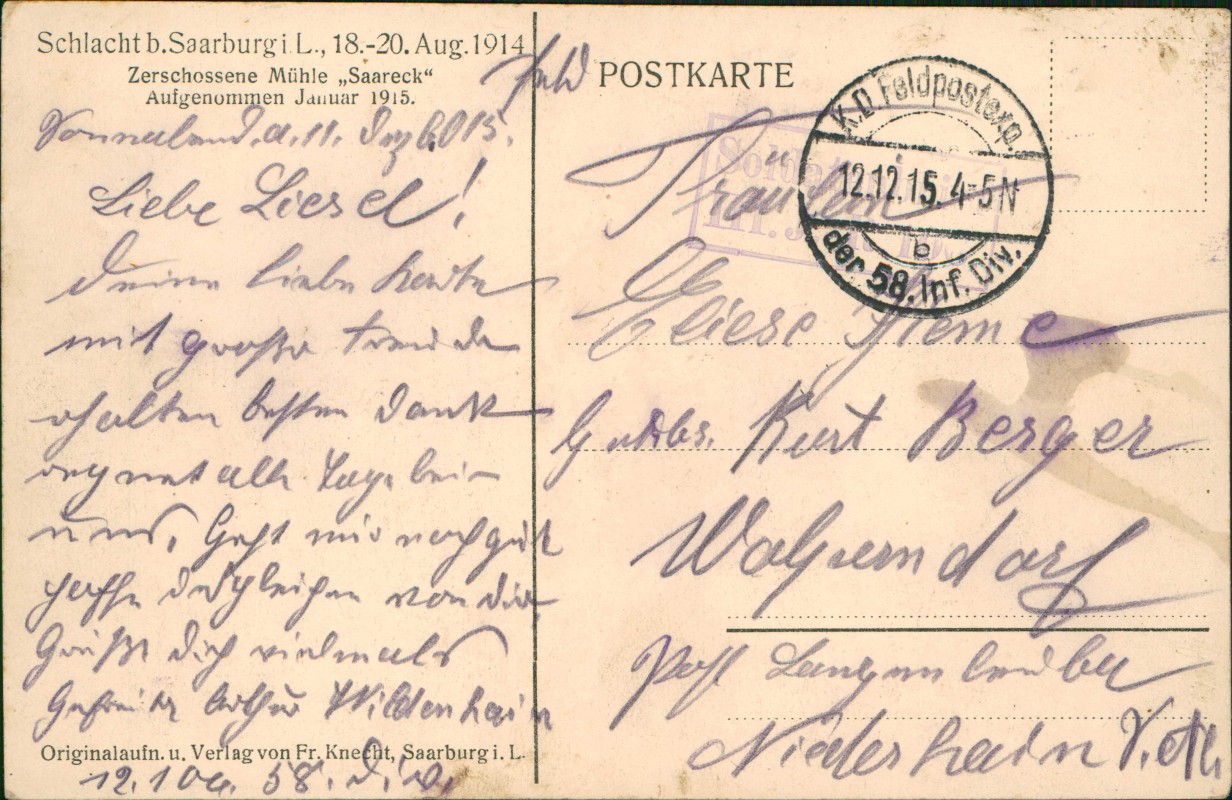 Schlacht b. Saarburg i. L., 18.-20. Aug. 1914
Zerschossene Mühle „Saareck“
Aufgenommen Januar 1915.
Sonnabend, d. 11. Dez 6015.
Liebe Liesel!
Deine liebe Karte
mit großer Freude
erhalten besten Dank
regnet alle Tage bei
uns, Geht mir noch gut
hoffe desgleichen von dir
Grüßt dich vielmals
Gefreiter Arthur Wildenhain
Originalaufn. u. Verlag von Fr. Knecht, Saarburg i. L.
12. 58. Div.
Feld POSTKARTE
K.D. Feldpostexp.
12.12.15. 4-5N
b
der 58. Inf. Div.
Fräulein
Eliese
Gutsbs. Kurt Berger
Wolperndorf
Post Langenleuba
Niederhain